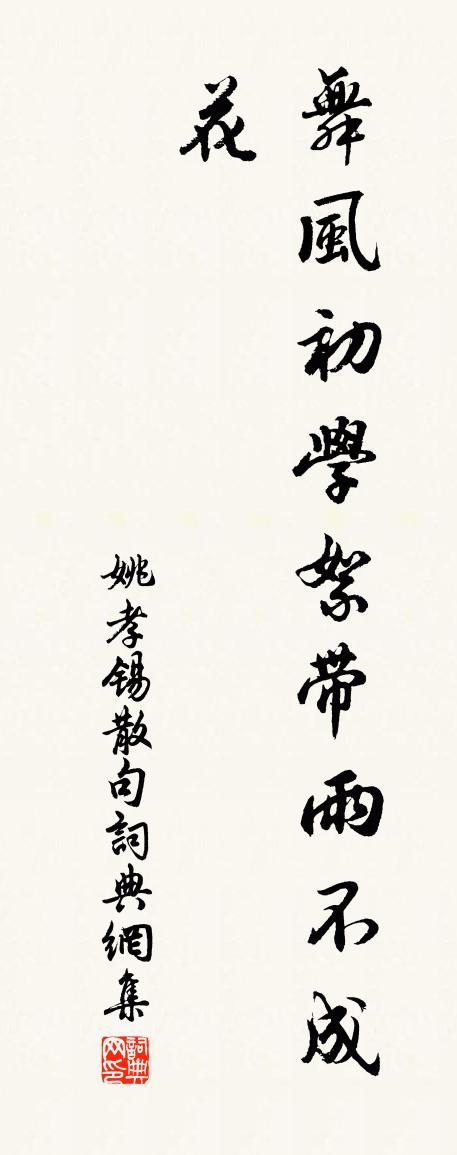 舞風初學絮帶雨不成
花
姚孝锡散句詞典網集
詞典
网印